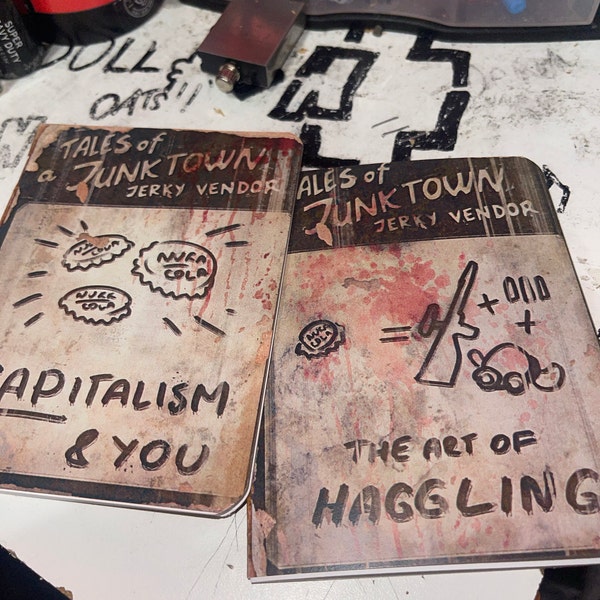 SUPER
HEAVY DUTY
OATS!!
TALES of
a JUNKTOWN
JERKY VENDOR
NUKA
COLA
NUKA
COLA
CAPITALISM
& YOU
TALES of
JUNKTOWN
JERKY VENDOR
NUKA
COLA
=
+
+
THE ART OF
HAGGLING